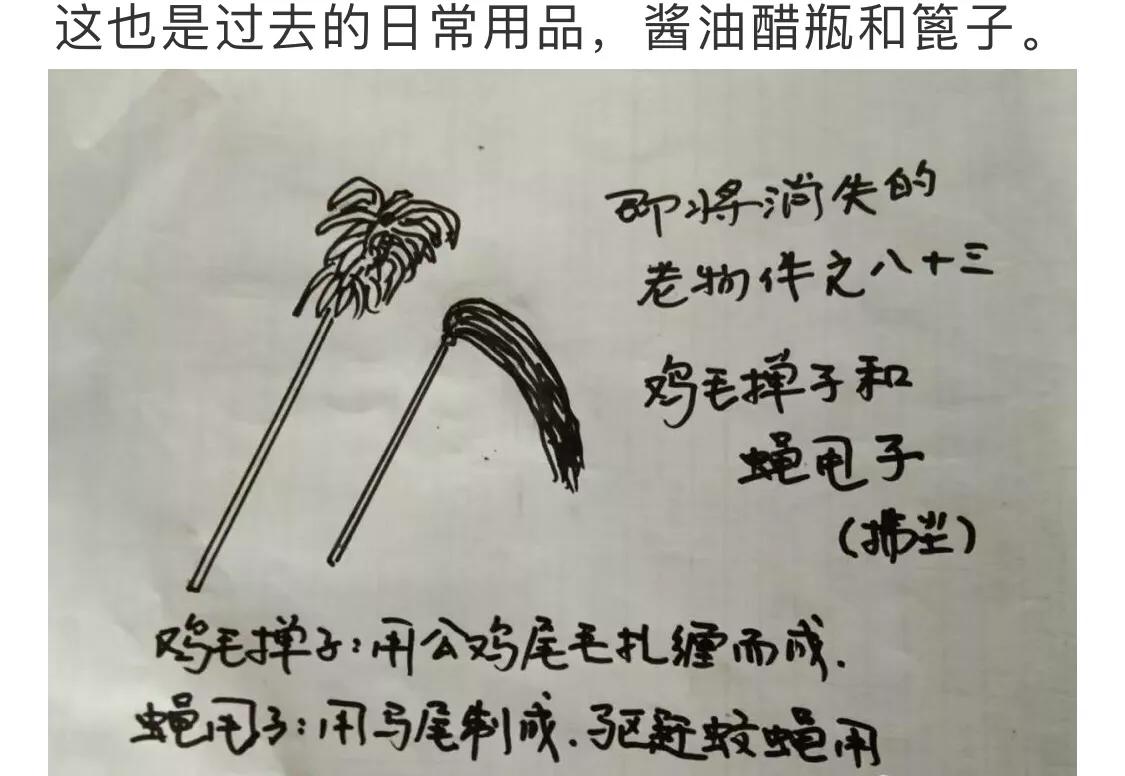 这也是过去的日常用品，酱油醋瓶和篦子。
即将消失的
老物件之八十三
鸡毛掸子和
蝇甩子
(拂尘)
鸡毛掸子:用公鸡尾毛扎缠而成.
蝇甩子:用马尾制成.驱赶蚊蝇用